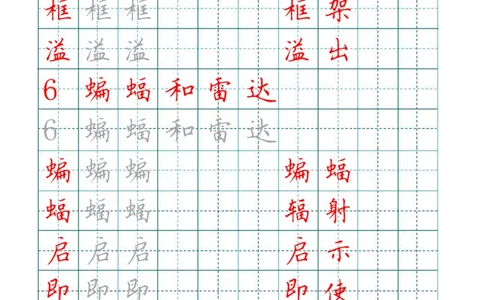 框 框 框 框 架
溢 溢 溢 溢 出
6 蝙 蝠 和 雷 达
6 蝙 蝠 和 雷 达
蝙 蝙 蝙 蝙 蝠
蝠 蝠 蝠 辐 射
启 启 启 启 示
即 即 即 即 使